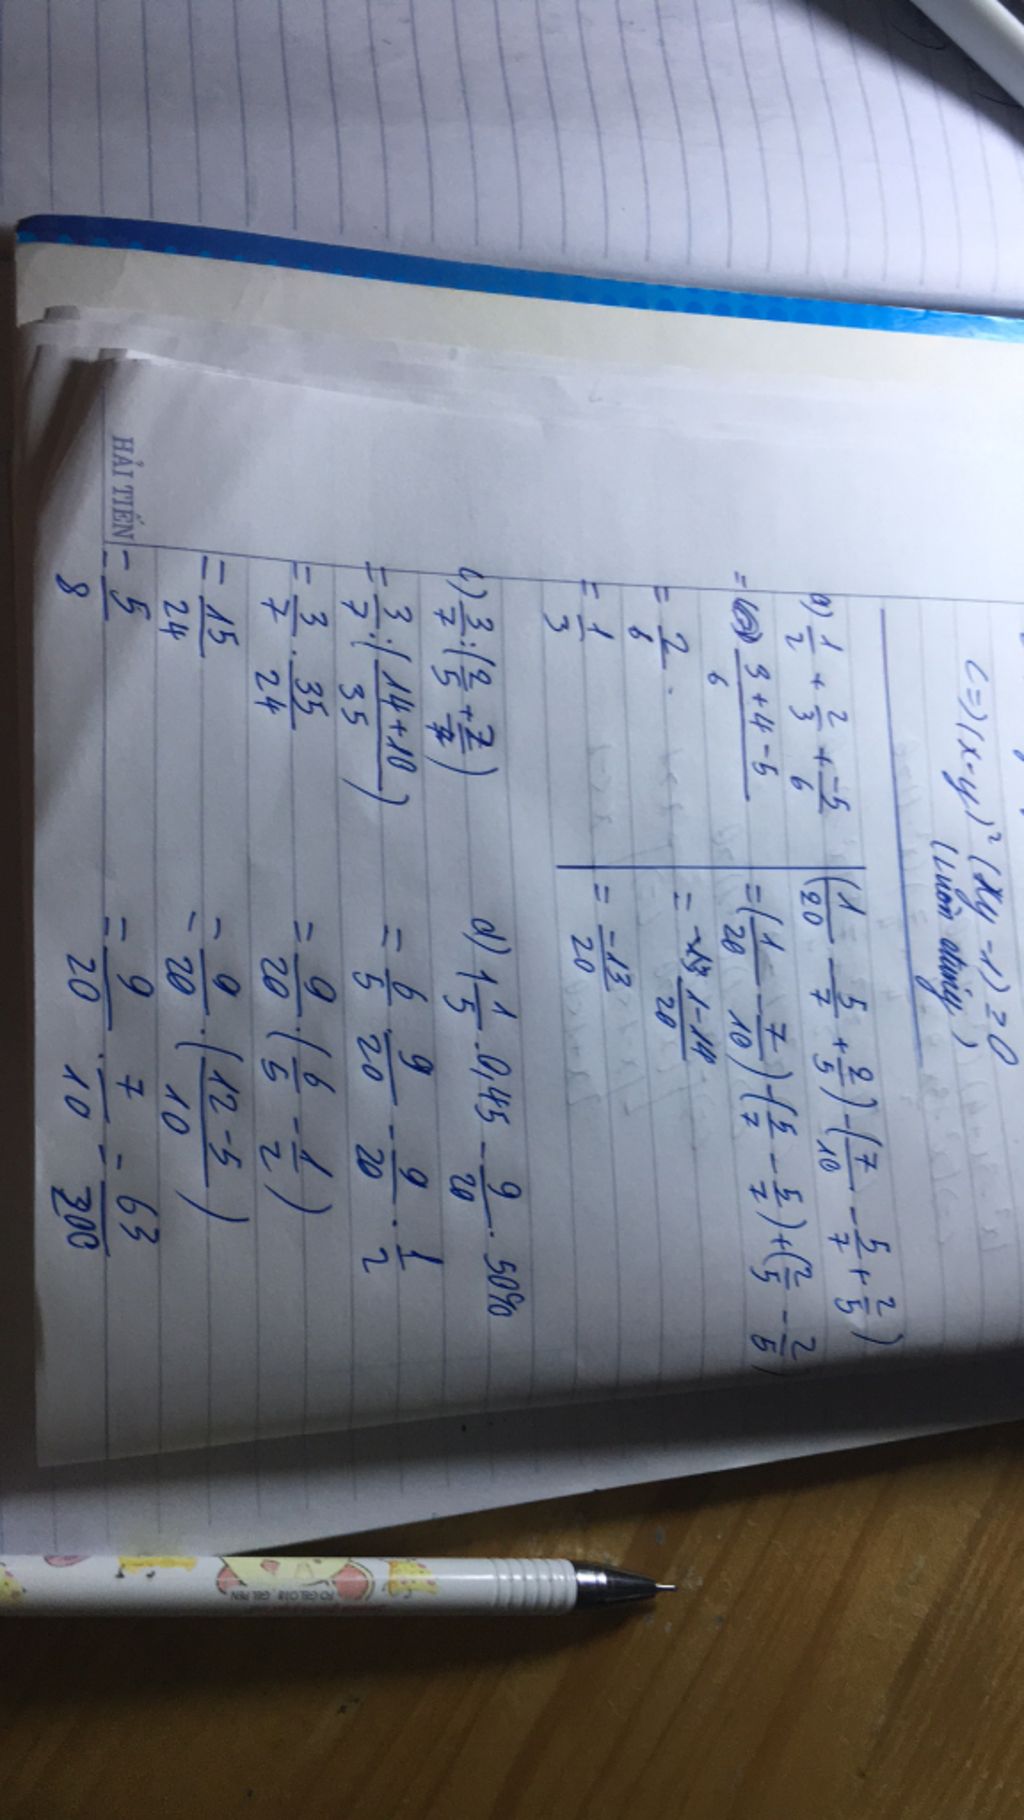 <=> (x-y)² (xy-1) ≥ 0
(luôn đúng)
a) 1/2 + 2/3 + -5/6
= 3+4-5/6
= 2/6
= 1/3
(1/20 - 5/7 + 2/5) - (7/10 - 5/7 + 2/5)
= (1/20 - 7/10) - (5/7 - 5/7) + (2/5 - 2/5)
= 1-14/20
= -13/20
c) 3/7 : (2/5 + 2/7)
= 3/7 : (14+10/35)
= 3/7 . 35/24
= 15/24
= 5/8
d) 1 1/5 . 0,45 - 9/20 . 50%
= 6/5 . 9/20 - 9/20 . 1/2
= 9/20 . (6/5 - 1/2)
= 9/20 . (12-5/10)
= 9/20 . 7/10 = 63/200
HẢI TIẾN